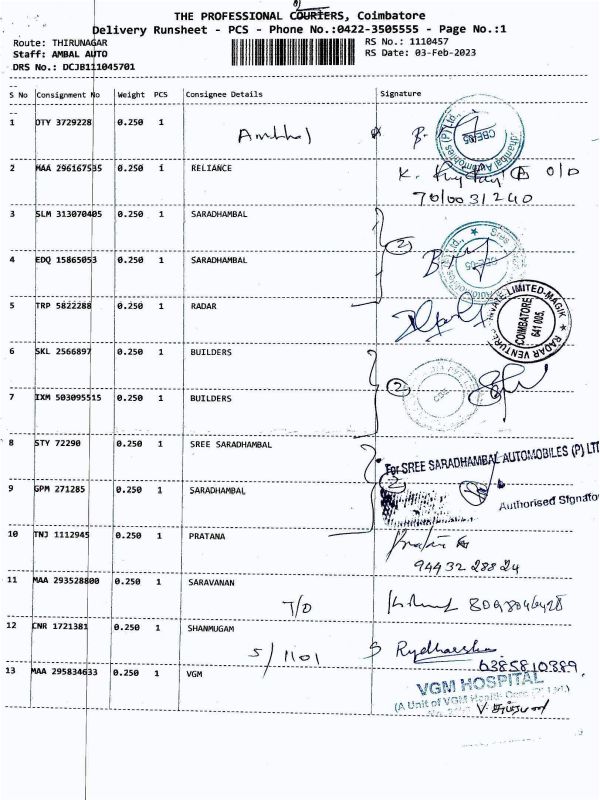 THE PROFESSIONAL COURIERS, Coimbatore
Delivery Runsheet - PCS - Phone No.:0422-3505555 - Page No.:1
Route: THIRUNAGAR RS No.: 1110457
Staff: AMBAL AUTO RS Date: 03-Feb-2023
DRS No.: DCJB111045701
S No Consignment No Weight PCS Consignee Details Signature
1 OTY 3729228 0.250 1 Ambal
2 MAA 296167535 0.250 1 RELIANCE
7010031240
3 SLM 313070405 0.250 1 SARADHAMBAL
2
4 EDQ 15865053 0.250 1 SARADHAMBAL
5 TRP 5822288 0.250 1 RADAR
COIMBATORE 641 005.
6 SKL 2566897 0.250 1 BUILDERS
2
7 IXM 503095515 0.250 1 BUILDERS
8 STY 72290 0.250 1 SREE SARADHAMBAL
For SREE SARADHAMBAL AUTOMOBILES (P) LTD
2
9 GPM 271285 0.250 1 SARADHAMBAL
Authorised Signato
10 TNJ 1112945 0.250 1 PRATANA
94432 28824
11 MAA 293528800 0.250 1 SARAVANAN
T/O 8098046428
12 CNR 1721381 0.250 1 SHANMUGAM
5/1101
6385810389
13 MAA 295834633 0.250 1 VGM
VGM HOSPITAL
(A Unit of VGM Health Care (P) Ltd.)